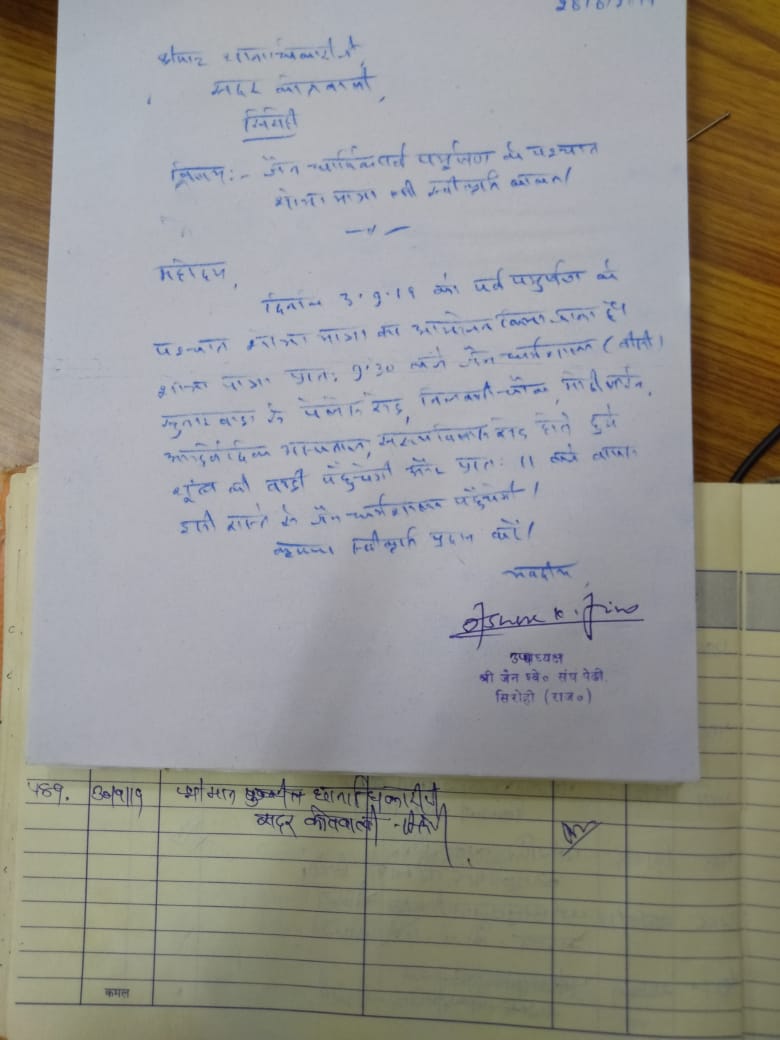 श्रीमान थानाधिकारी जी,
सदर कोतवाली,
सिरोही
विषय:- जैन धार्मिक पर्व पर्युषण के पश्चात
शोभा यात्रा की स्वीकृति बाबत।
महोदय,
दिनांक 3.9.19 को पर्व पर्युषण के
पश्चात शोभा यात्रा का आयोजन किया जाता है।
शोभा यात्रा प्रातः 9:30 बजे जैन धर्मशाला
सुनारवाडा से पैलेस रोड,
आयुर्वेदिक अस्पताल, रोड होते हुये
वाडी पहुँचेगी और प्रातः 11 बजे वापस
इसी रास्ते से जैन धर्मशाला पहुँचेगी।
कृपया स्वीकृति प्रदान करें।
भवदीय,
उपाध्यक्ष
श्री जैन श्वे० संघ पेढी
सिरोही (राज०)
489.
श्रीमान थानाधिकारी
सदर कोतवाली
कमल